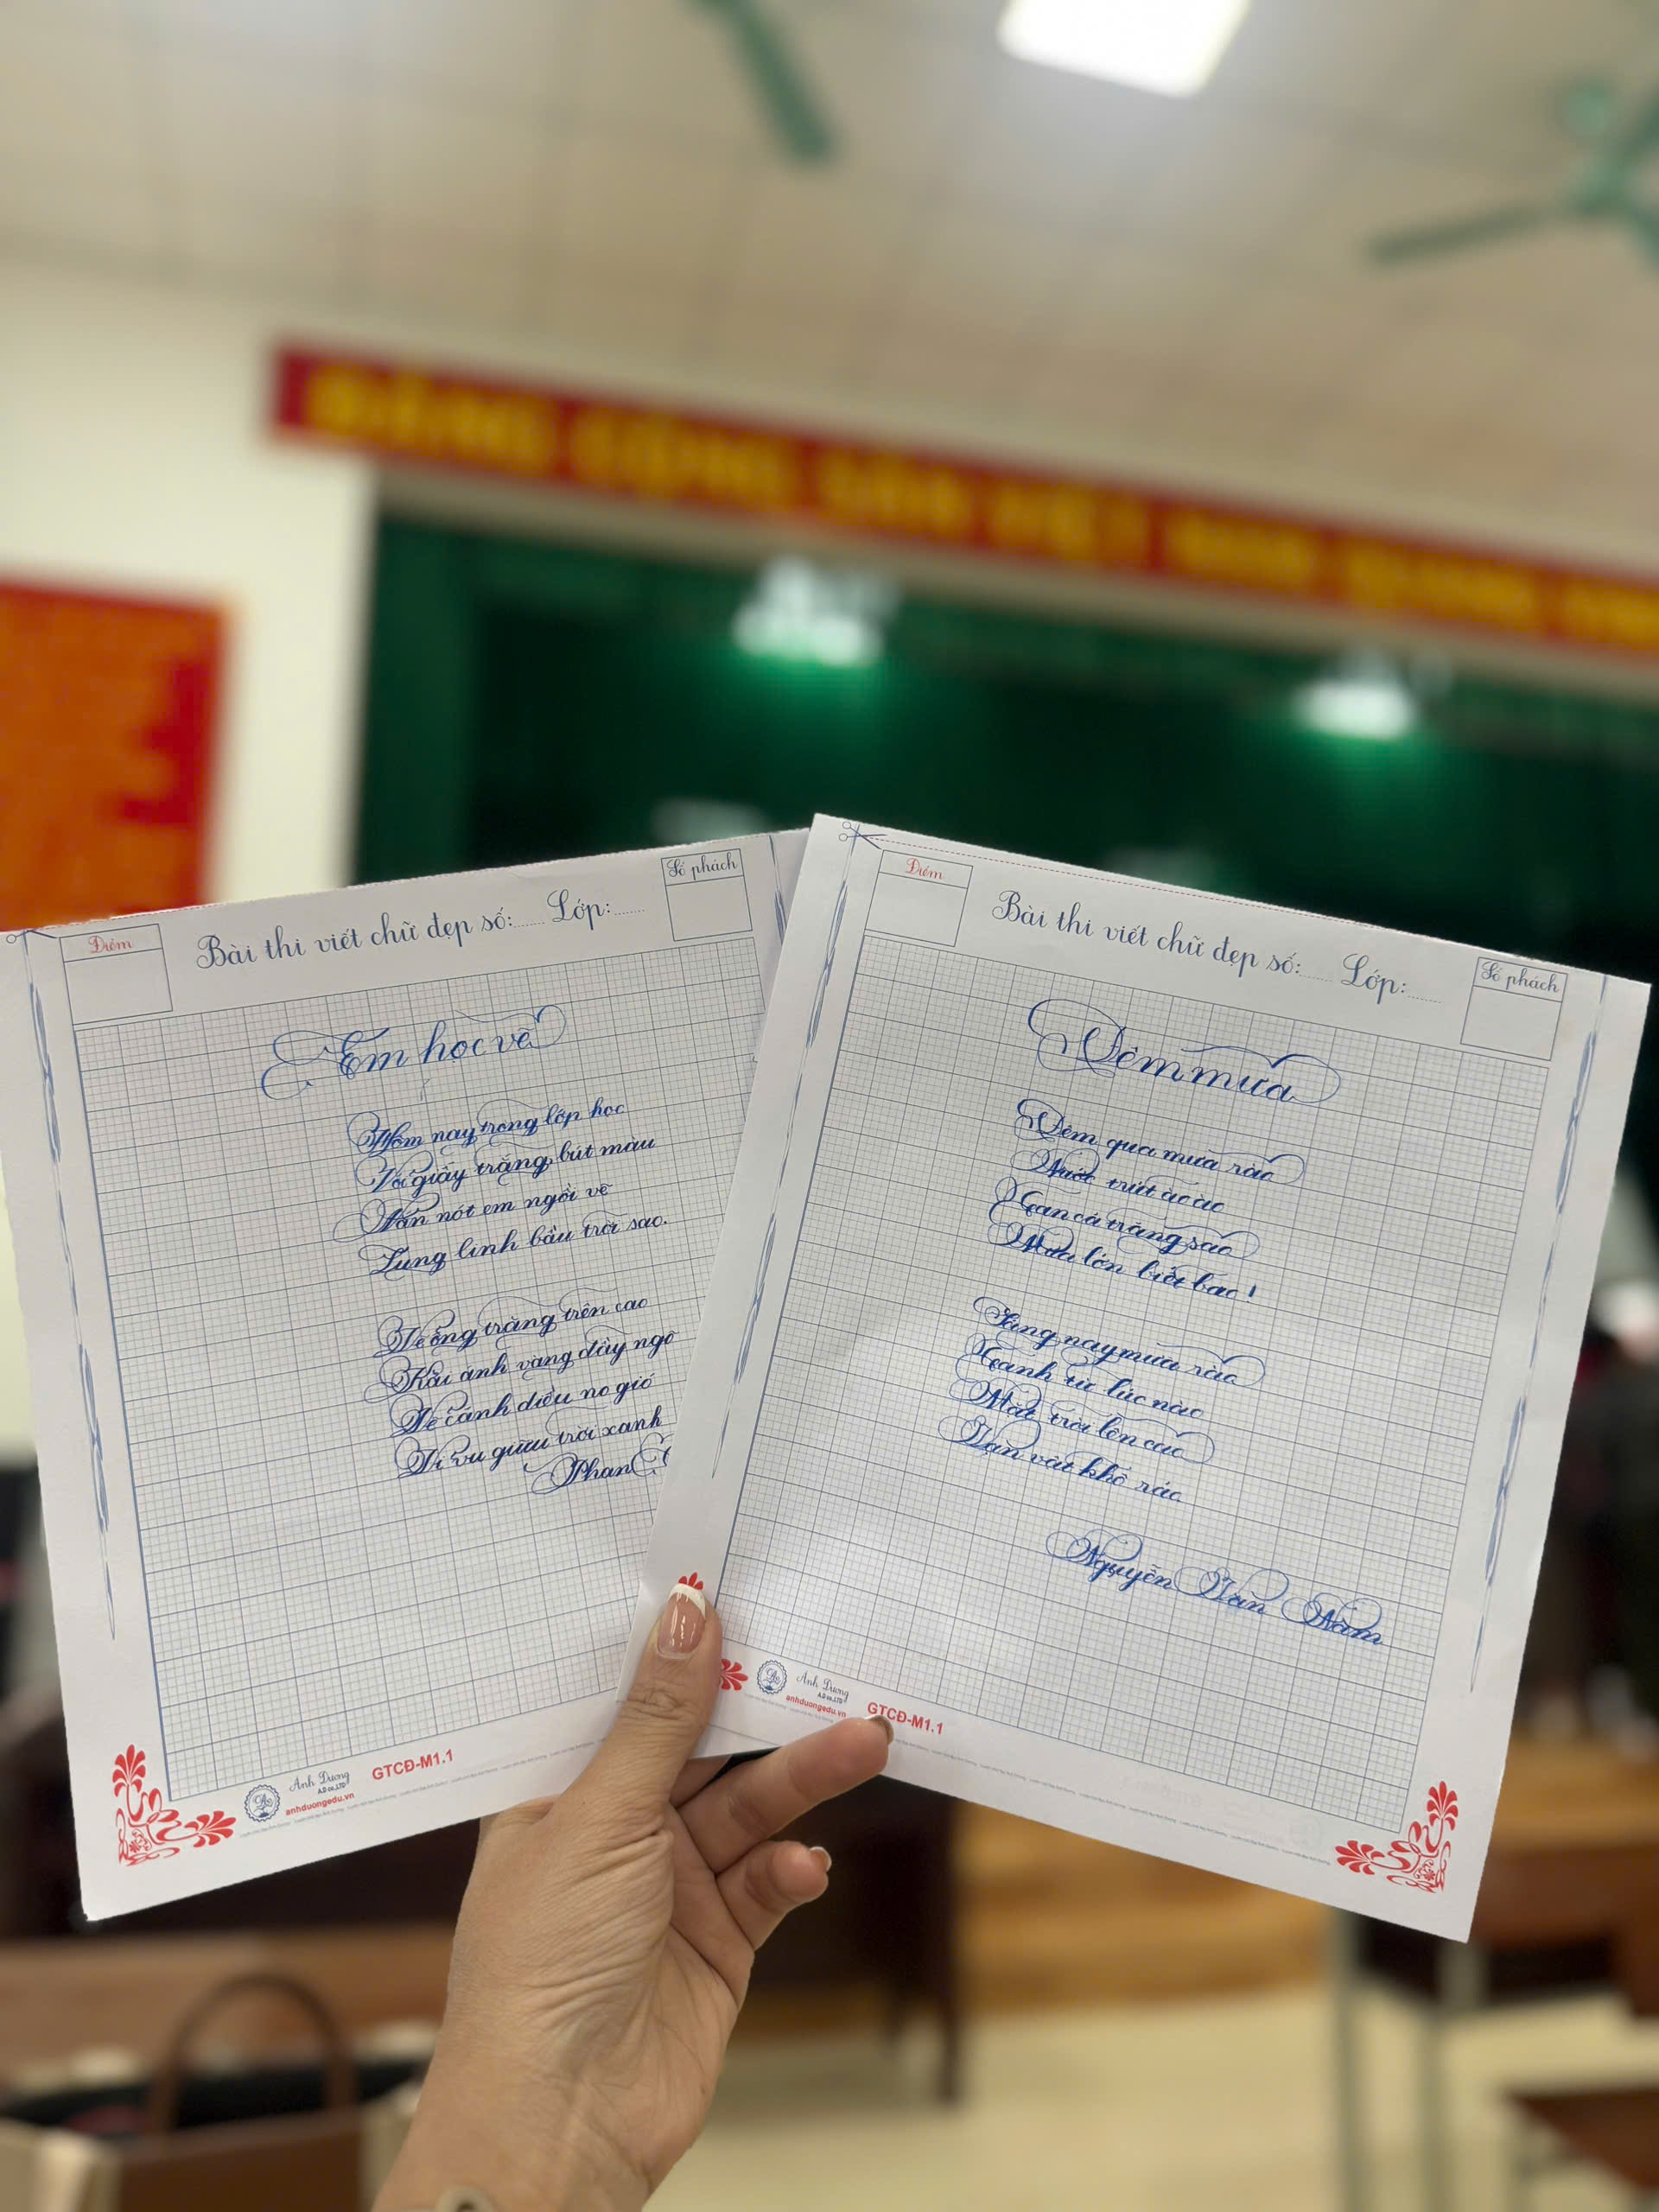 ĐẢNG CỘNG SẢN VIỆT NAM QUANG
Điểm
Bài thi viết chữ đẹp số:...... Lớp:......
Số phách
Em học vẽ
Hôm nay trong lớp học
Với giấy trắng, bút màu
Nắn nót em ngồi vẽ
Lung linh bầu trời sao.
Vẽ ông trăng trên cao
Rải ánh vàng đầy ngõ
Vẽ cánh diều no gió
Vi vu giữa trời xanh
Phan
Anh Dương
A.D co.,LTD
anhduongedu.vn
GTCĐ-M1.1
Điểm
Bài thi viết chữ đẹp số:...... Lớp:......
Số phách
Đêm mưa
Đêm qua mưa rào
Nước trút ào ào
Tan cả trăng sao
Mưa lớn biết bao!
Sáng nay mưa rào
Tạnh từ lúc nào
Mặt trời lên cao
Vạn vật khô ráo
Nguyễn Văn Năm
Anh Dương
A.D co.,LTD
anhduongedu.vn
GTCĐ-M1.1